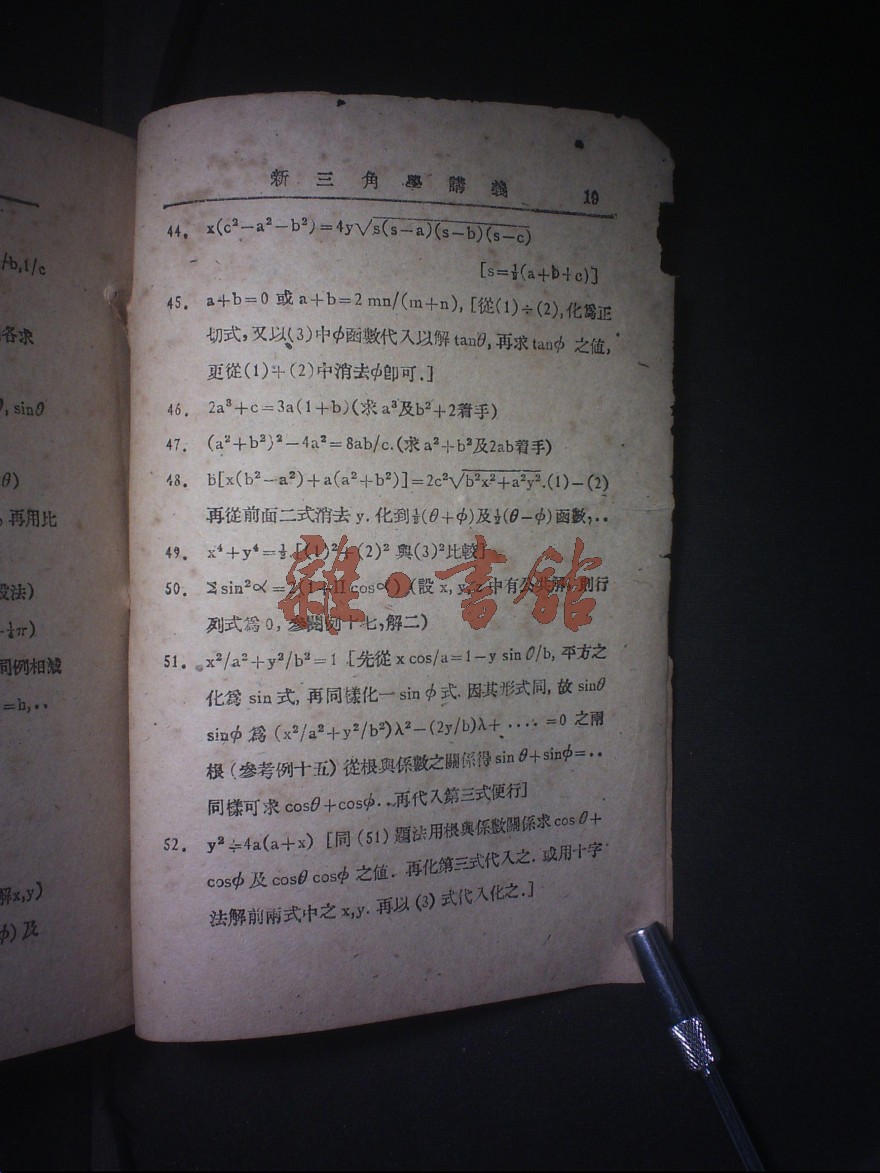 新三角學講義 19
44. x(c²−a²−b²)=4y√s(s−a)(s−b)(s−c)
[s=½(a+b+c)]
45. a+b=0 或 a+b=2 mn/(m+n), [從(1)÷(2),化爲正
切式, 又以(3)中φ函數代入以解 tanθ, 再求tanφ 之値,
更從(1)÷(2)中消去φ卽可.]
46. 2a³+c=3a(1+b)(求 a³及b²+2着手)
47. (a²+b²)²−4a²=8ab/c.(求 a²+b²及2ab着手)
48. b[x(b²−a²)+a(a²+b²)]=2c²√b²x²+a²y².(1)−(2)
再從前面二式消去 y. 化到½(θ+φ)及½(θ−φ)函數,..
49. x⁴+y⁴=½.[(1)²+(2)² 與(3)²比較]
50. Σsin²α=2(1+Πcosα) (設 x, y, z 中有公共解, 則行
列式爲 0, 參閱例十七,解二)
51. x²/a²+y²/b²=1 [先從 x cos/a=1−y sin θ/b, 平方之
化爲 sin 式, 再同樣化一 sin φ 式. 因其形式同, 故 sinθ
sinφ 爲 (x²/a²+y²/b²)λ²−(2y/b)λ+ .... =0 之兩
根 (參考例十五) 從根與係數之關係得 sin θ+sinφ=..
同樣可求 cosθ+cosφ..再代入第三式便行]
52. y²=4a(a+x) [同 (51) 題法用根與係數關係求 cos θ+
cosφ 及 cosθ cosφ 之値. 再化第三式代入之. 或用十字
法解前兩式中之 x,y. 再以 (3) 式代入化之.]
/b,1/c
各求
, sinθ
θ)
, 再用比
設法)
−½π)
同例相減
=h,..
解x,y)
φ) 及
雜·書館